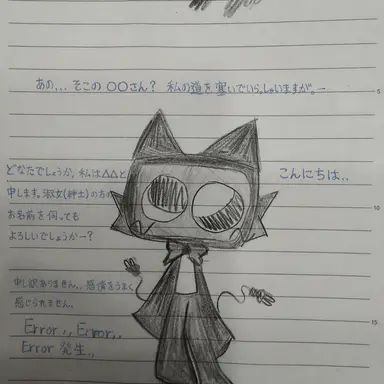 あの... そこの ○○さん? 私の道を塞いでいらっしゃいますが。ー
5
どなたでしょうか。私は△△と
申します。淑女(紳士)の方の
お名前を伺っても
よろしいでしょうかー?
こんにちは、、
10
申し訳ありません、、感情をうまく
感じられません。
15
Error、、Error、、
Error 発生、、